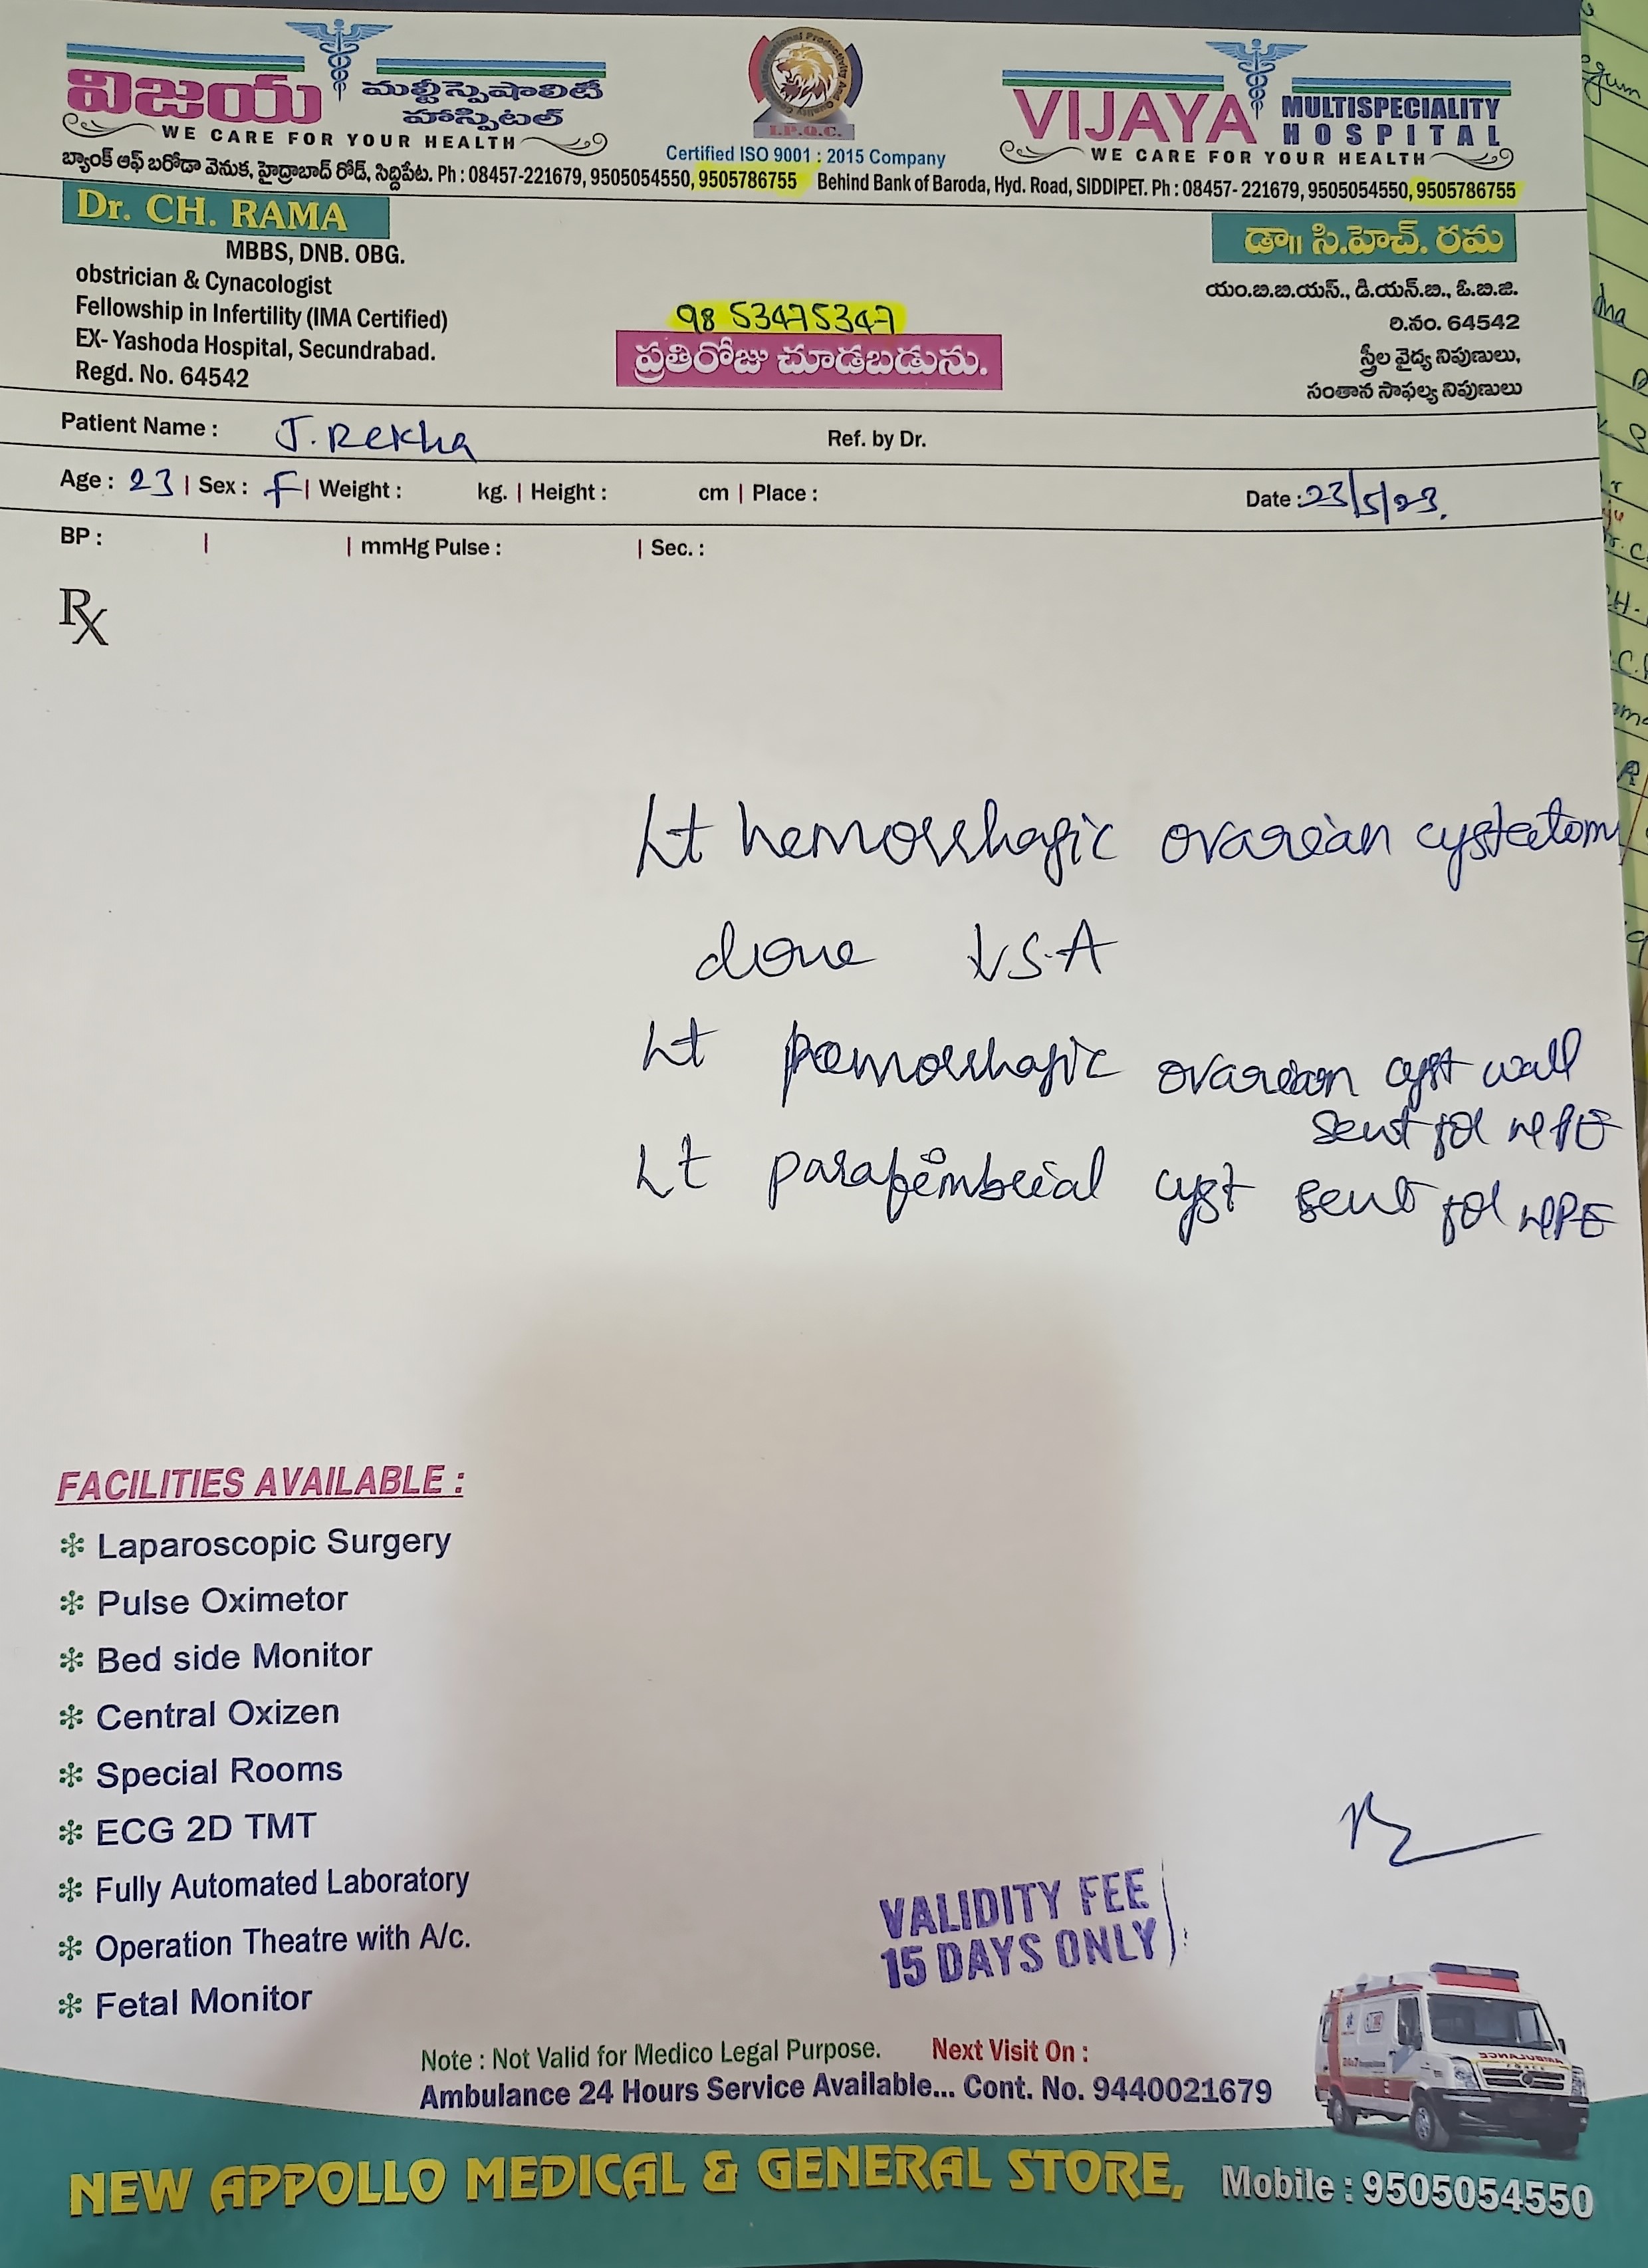 విజయ మల్టీస్పెషాలిటీ హాస్పిటల్
WE CARE FOR YOUR HEALTH
I.P.Q.C.
Certified ISO 9001 : 2015 Company
VIJAYA MULTISPECIALITY HOSPITAL
WE CARE FOR YOUR HEALTH
బ్యాంక్ ఆఫ్ బరోడా వెనుక, హైద్రాబాద్ రోడ్, సిద్దిపేట. Ph : 08457-221679, 9505054550, 9505786755
Behind Bank of Baroda, Hyd. Road, SIDDIPET. Ph : 08457- 221679, 9505054550, 9505786755
Dr. CH. RAMA
MBBS, DNB. OBG.
obstrician & Cynacologist
Fellowship in Infertility (IMA Certified)
EX- Yashoda Hospital, Secundrabad.
Regd. No. 64542
98 53475347
ప్రతిరోజు చూడబడును.
డా॥ సి.హెచ్. రమ
యం.బి.బి.యస్., డి.యన్.బి., ఓ.బి.జి.
రి.నం. 64542
స్త్రీల వైద్య నిపుణులు,
సంతాన సాఫల్య నిపుణులు
Patient Name : J. Rekha Ref. by Dr.
Age : 23 | Sex : F | Weight : kg. | Height : cm | Place : Date : 23/5/23.
BP : | | mmHg Pulse : | Sec. :
Rx
Lt hemorrhagic ovarian cystectomy
done ↓ S.A
Lt hemorrhagic ovarian cyst wall
sent for HPE
Lt parafimbrial cyst sent for HPE
FACILITIES AVAILABLE :
Laparoscopic Surgery
Pulse Oximetor
Bed side Monitor
Central Oxizen
Special Rooms
ECG 2D TMT
Fully Automated Laboratory
Operation Theatre with A/c.
Fetal Monitor
VALIDITY FEE
15 DAYS ONLY
Note : Not Valid for Medico Legal Purpose. Next Visit On :
Ambulance 24 Hours Service Available... Cont. No. 9440021679
NEW APPOLLO MEDICAL & GENERAL STORE, Mobile : 9505054550